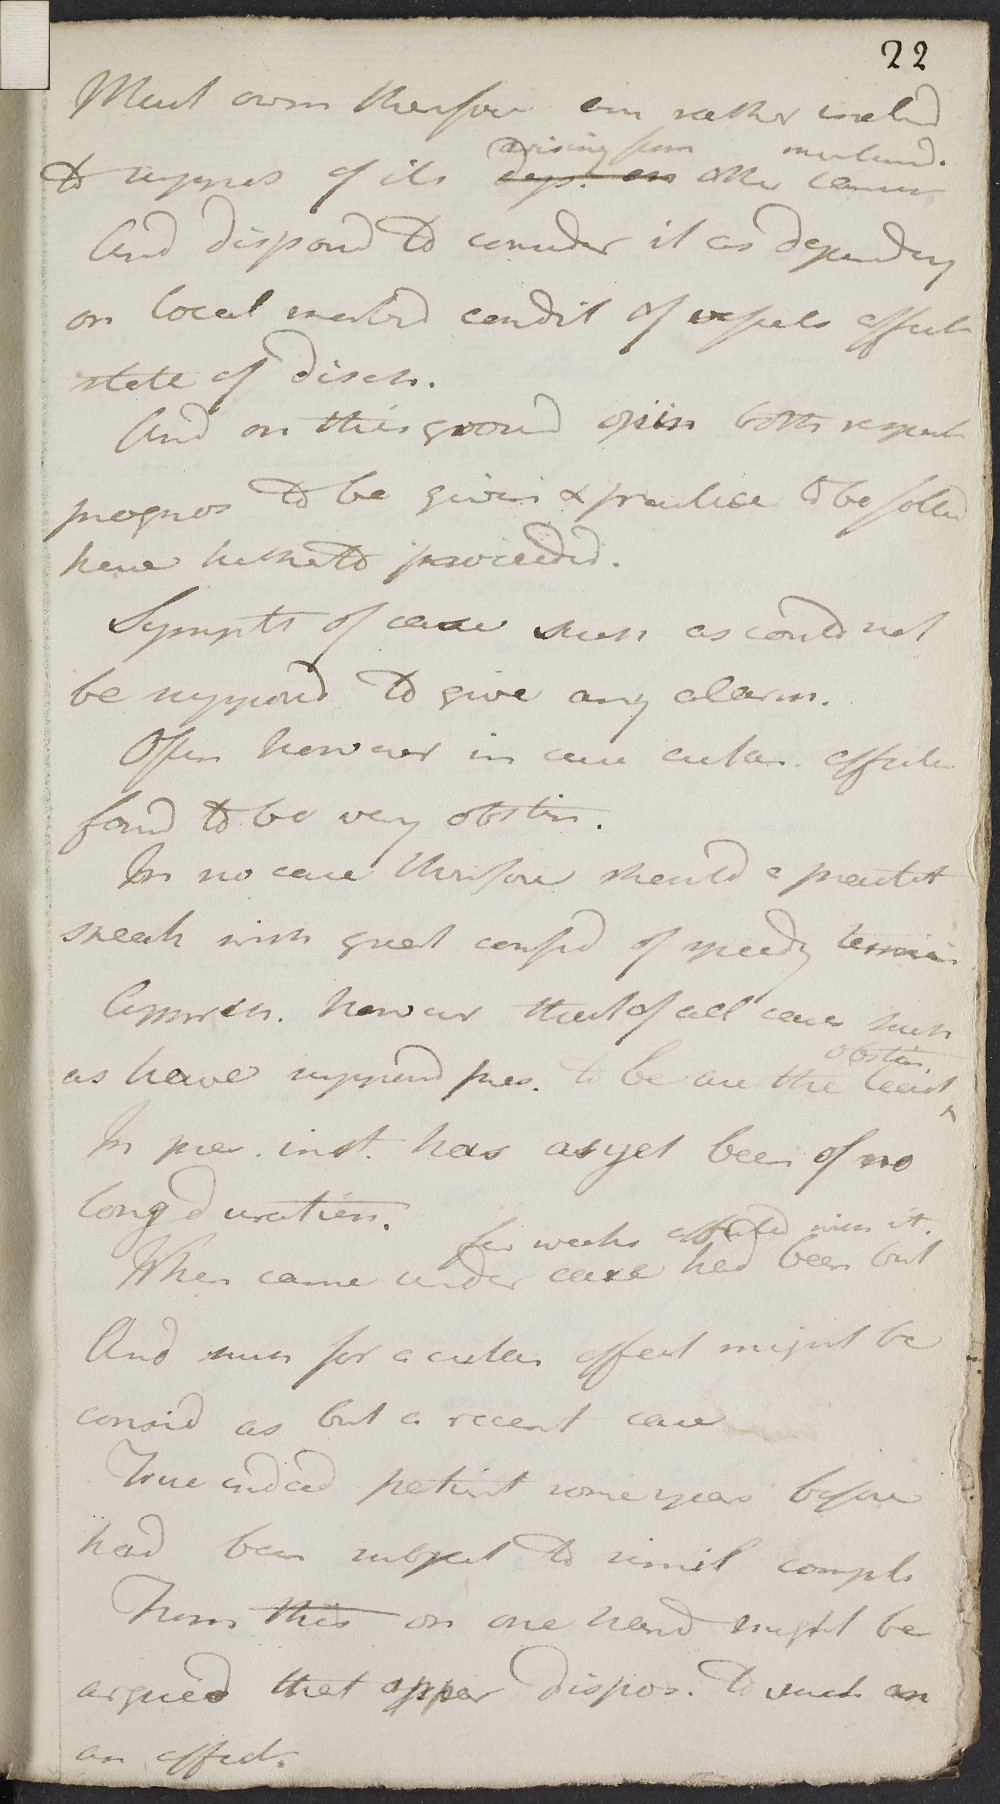 22
Must own therefore am rather inclind
arising from mentiond.
to suppos of its dep. on other causes
And disposd to consider it as dependng
on local morbid condit of vessels affect
state of disch.
And on this ground opin both respect
prognos to be given & practice to be follow
have hitherto proceeded.
Sympts of case such as could not
be supposd to give any alarm.
Often however in case cutan. affect
found to be very obstin.
In no case therefore should a practit
speak with great confid of speedy termin
Apprehn. however that of all cases such
obstin.
as have supposd pres. to be are the least ^
In pres. inst. has as yet been of no
long duration.
few weeks affected with it.
When came under care had been but
And such for a cutan affect might be
consid as but a recent case
True indeed patient some years before
had been subject to simil compl.
From this on one hand might be
argued that appear dispos. to such an
an affect.